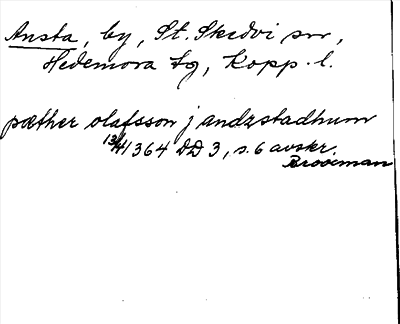 Ansta, by, St. Skedvi sn,
Hedemora tg, Kopp. l.
pæther olafsson j andzstadhum
13/4 1364 DD 3, s. 6 avskr.
Brooman